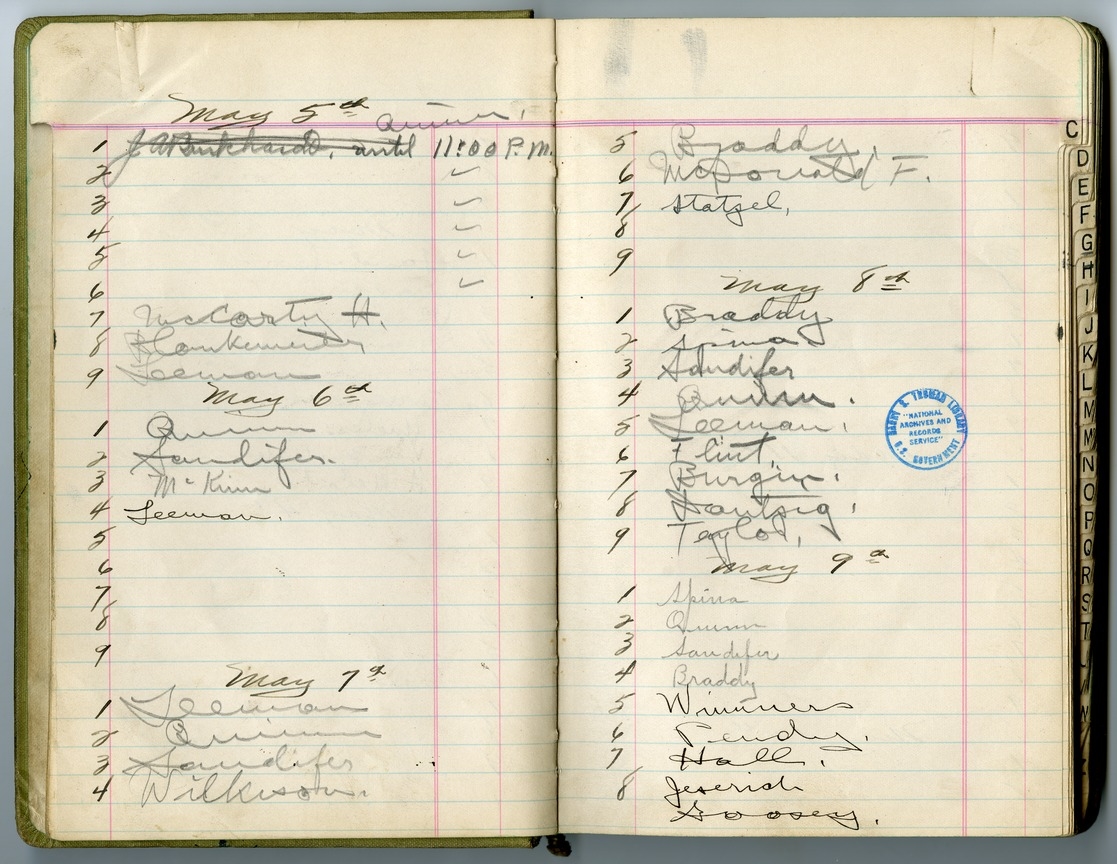 May 5th
Quinn.
1 J A Burkhardt, until 11:00 P.M.
2
3
4
5
6
7 McCarty H.
8 Blankemeier
9 Leeman
May 6th
1 Quinn
2 Sandifer.
3 McKinn
4 Leeman.
5
6
7
8
9
May 7th
1 Leeman
2 Quinn
3 Sandifer
4 Wilkison.
5 Braddy.
6 McDonald F.
7 Statzel,
8
9
May 8th
1 Braddy
2 Spina
3 Sandifer
4 Quinn.
5 Leeman.
6 Flint,
7 Burgin.
8
9 Taylor,
May 9th
1 Spina
2 Quinn
3 Sandifer
4 Braddy
5 Wimmers
6 Pendy.
7 Hall.
8 Jeserich
Goosey.
HARRY S. TRUMAN LIBRARY
"NATIONAL
ARCHIVES AND
RECORDS
SERVICE"
U.S. GOVERNMENT
C
D
E
F
G
H
I
J
K
L
M
M
N
O
P
Q
R
S
T